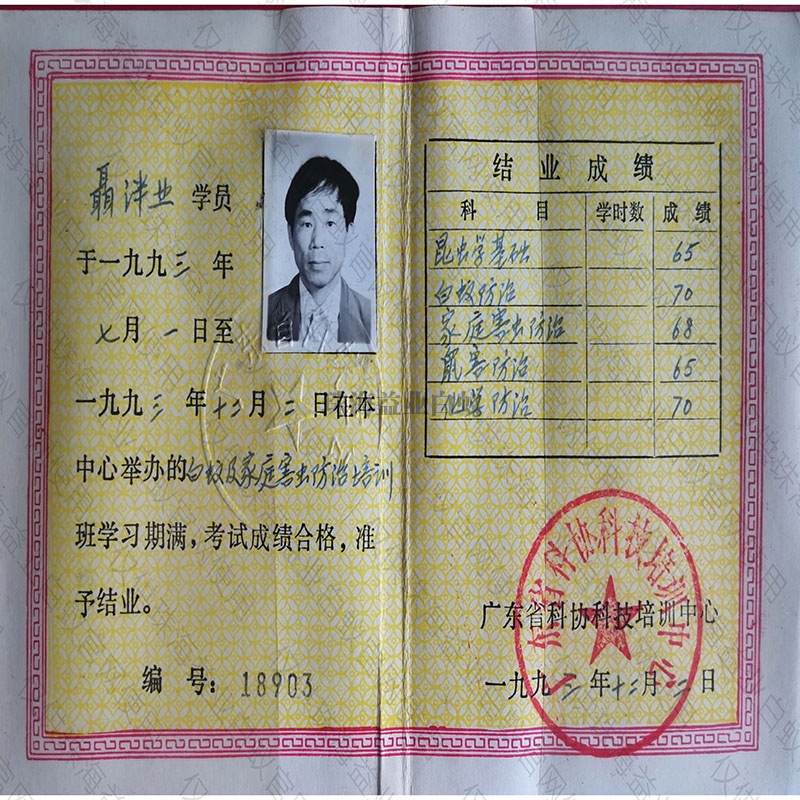 聶泮业 学员
于一九九三年
七月一日至
一九九三年十二月二日在本
中心举办的白蚁及家庭害虫防治培训
班学习期满，考试成绩合格，准
予结业。
编号：18903
结业成绩
科目 学时数 成绩
昆虫学基础 65
白蚁防治 70
家庭害虫防治 68
鼠害防治 65
化学防治 70
广东省科协科技培训中心
一九九三年十二月二日
珠海益业白蚁